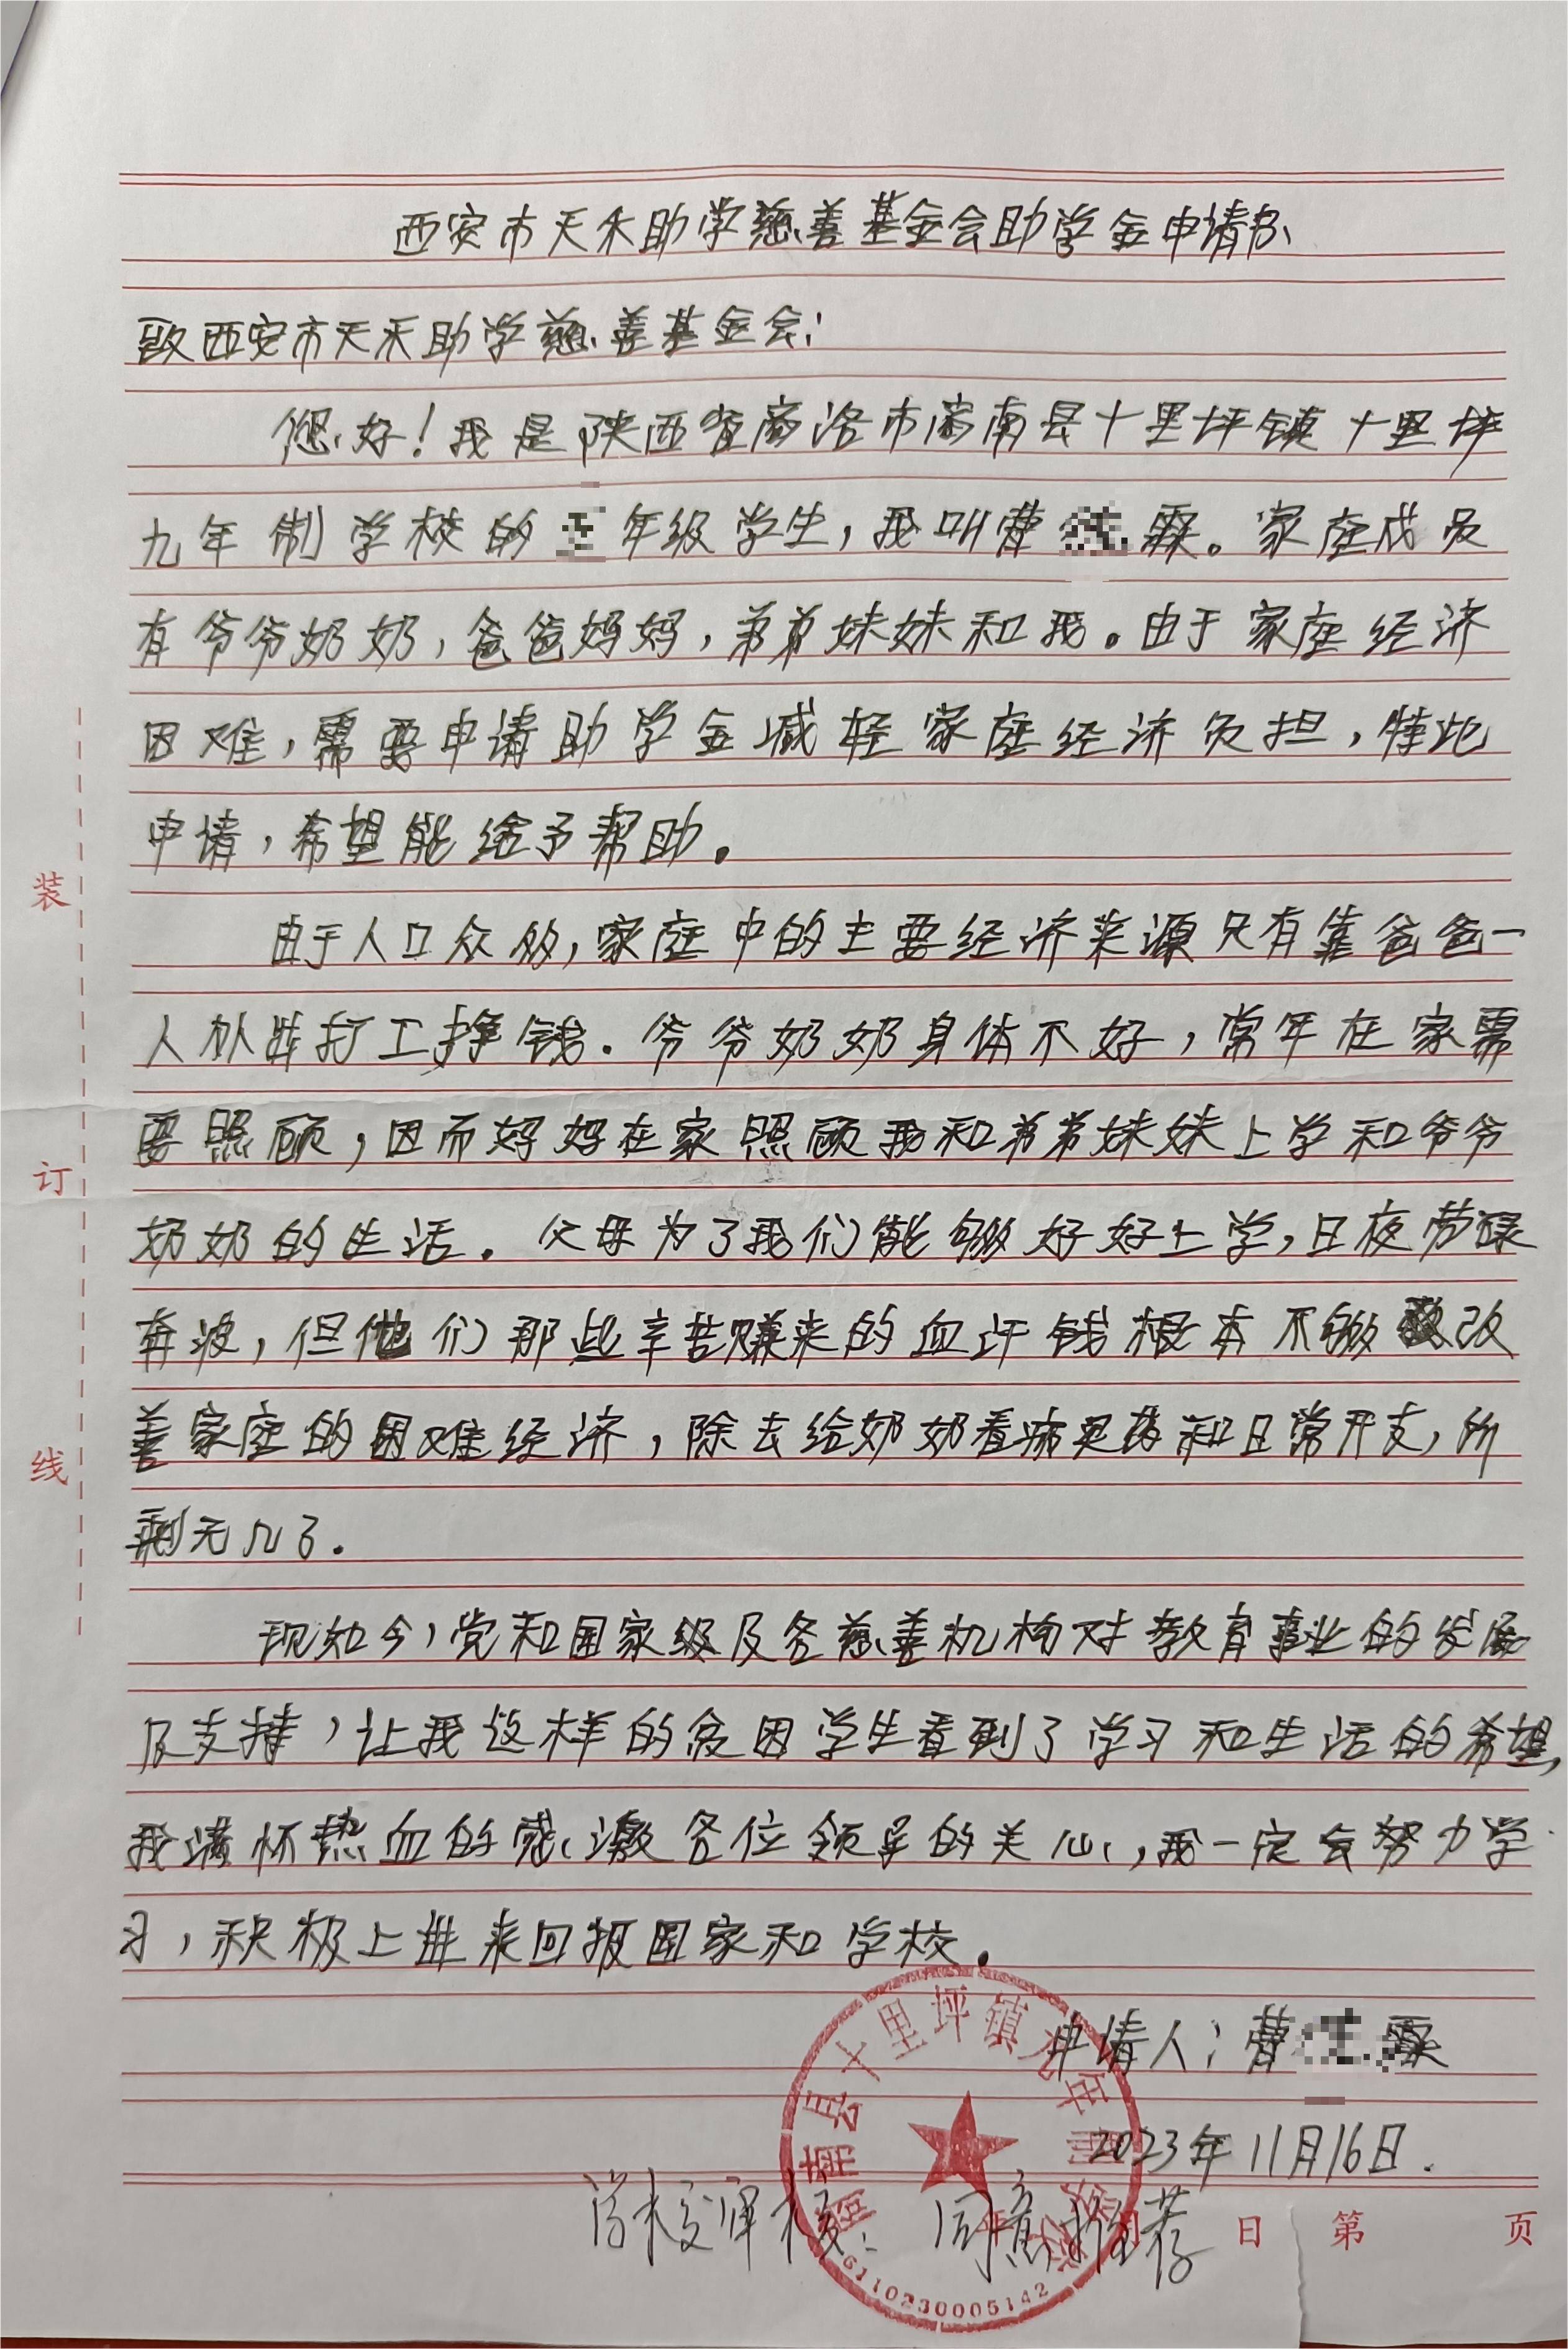 西安市天禾助学慈善基金会助学金申请书
致西安市天禾助学慈善基金会:
您好!我是陕西省商洛市商南县十里坪镇十里坪
九年制学校的 年级学生,我叫曹 霖。家庭成员
有爷爷奶奶,爸爸妈妈,弟弟妹妹和我。由于家庭经济
困难,需要申请助学金减轻家庭经济负担,特此
申请,希望能给予帮助。
由于人口众多,家庭中的主要经济来源只有靠爸爸一
人 打工挣钱.爷爷奶奶身体不好,常年在家需
要照顾,因而妈妈在家照顾我和弟弟妹妹上学和爷爷
奶奶的生活.父母为了我们能够好好上学,日夜劳碌
奔波,但他们那些辛苦赚来的血汗钱根本不够 改
善家庭的困难经济,除去给奶奶看病买药和日常开支,所
剩无几了.
现如今,党和国家级及各慈善机构对教育事业的发展
及支持,让我这样的贫困学生看到了学习和生活的希望,
我满怀热血的感激各位领导的关心,我一定会努力学
习,积极上进来回报国家和学校.
申请人:曹 霖
2023年11月16日.
学校审核:同意推荐
日 第 页
商南县十里坪镇九年制学校
6110230005142
装
订
线